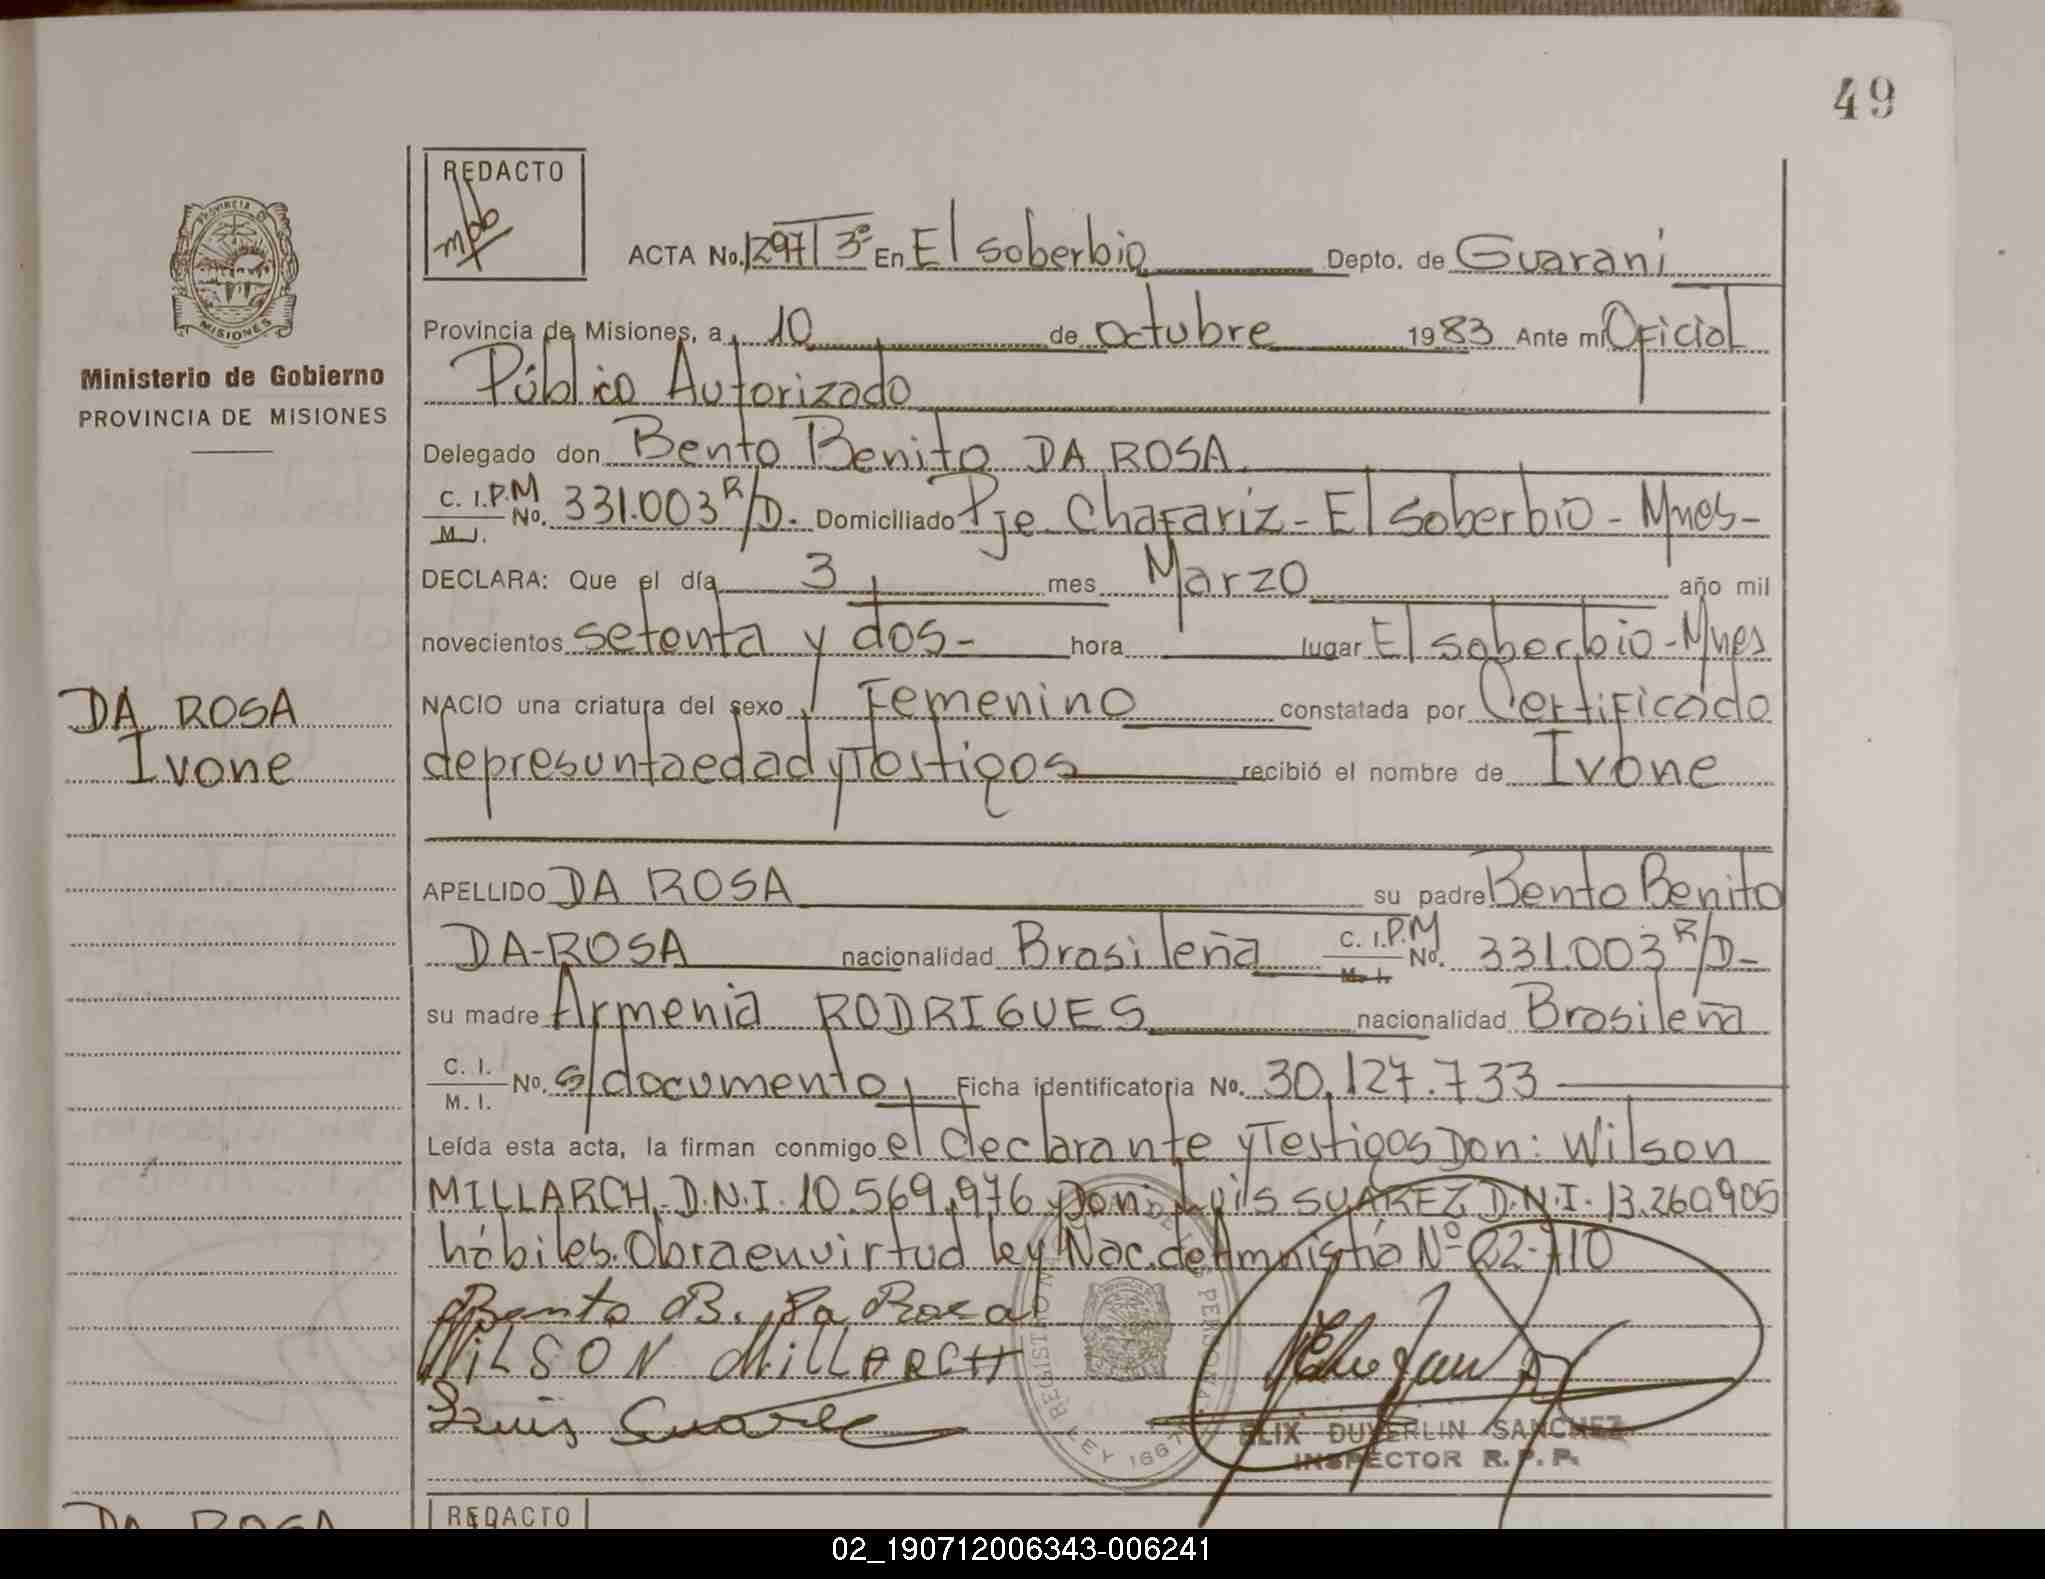 49
REDACTO
ACTA No. 1297 T 3º En El Soberbio Depto. de Guaraní
Provincia de Misiones, a 10 de octubre 1983 Ante mi Oficial
Público Autorizado
Delegado don Bento Benito DA ROSA
C. I.P.M No. 331.003 R/D. Domiciliado Pje. Chafariz - El Soberbio - Mnes -
M. I.
DECLARA: Que el día 3 mes Marzo año mil
novecientos setenta y dos - hora lugar El Soberbio - Mnes
NACIO una criatura del sexo Femenino constatada por Certificado
de presunta edad y Testigos recibió el nombre de Ivone
APELLIDO DA ROSA su padre Bento Benito
DA-ROSA nacionalidad Brasileña C. I.P.M No. 331.003 R/D-
M. I.
su madre Armenia RODRIGUES nacionalidad Brasileña
C. I. No. s/documento Ficha identificatoria No. 30.127.733
M. I.
Leída esta acta, la firman conmigo el declarante y Testigos Don: Wilson
MILLARCH, D.N.I. 10.569.976 y Don: Luis SUAREZ D.N.I. 13.260905
hábiles. Obra en virtud ley Nac. de Amnistía Nº 22.710
Bento B. Da Rosa
WILSON MILLARCH
Luis Suarez
ELIX DUVERLIN SANCHEZ
INSPECTOR R. P. P.
LEY 1667
REDACTO
PROVINCIA DE
MISIONES
Ministerio de Gobierno
PROVINCIA DE MISIONES
DA ROSA
Ivone
DA ROSA
02_190712006343-006241